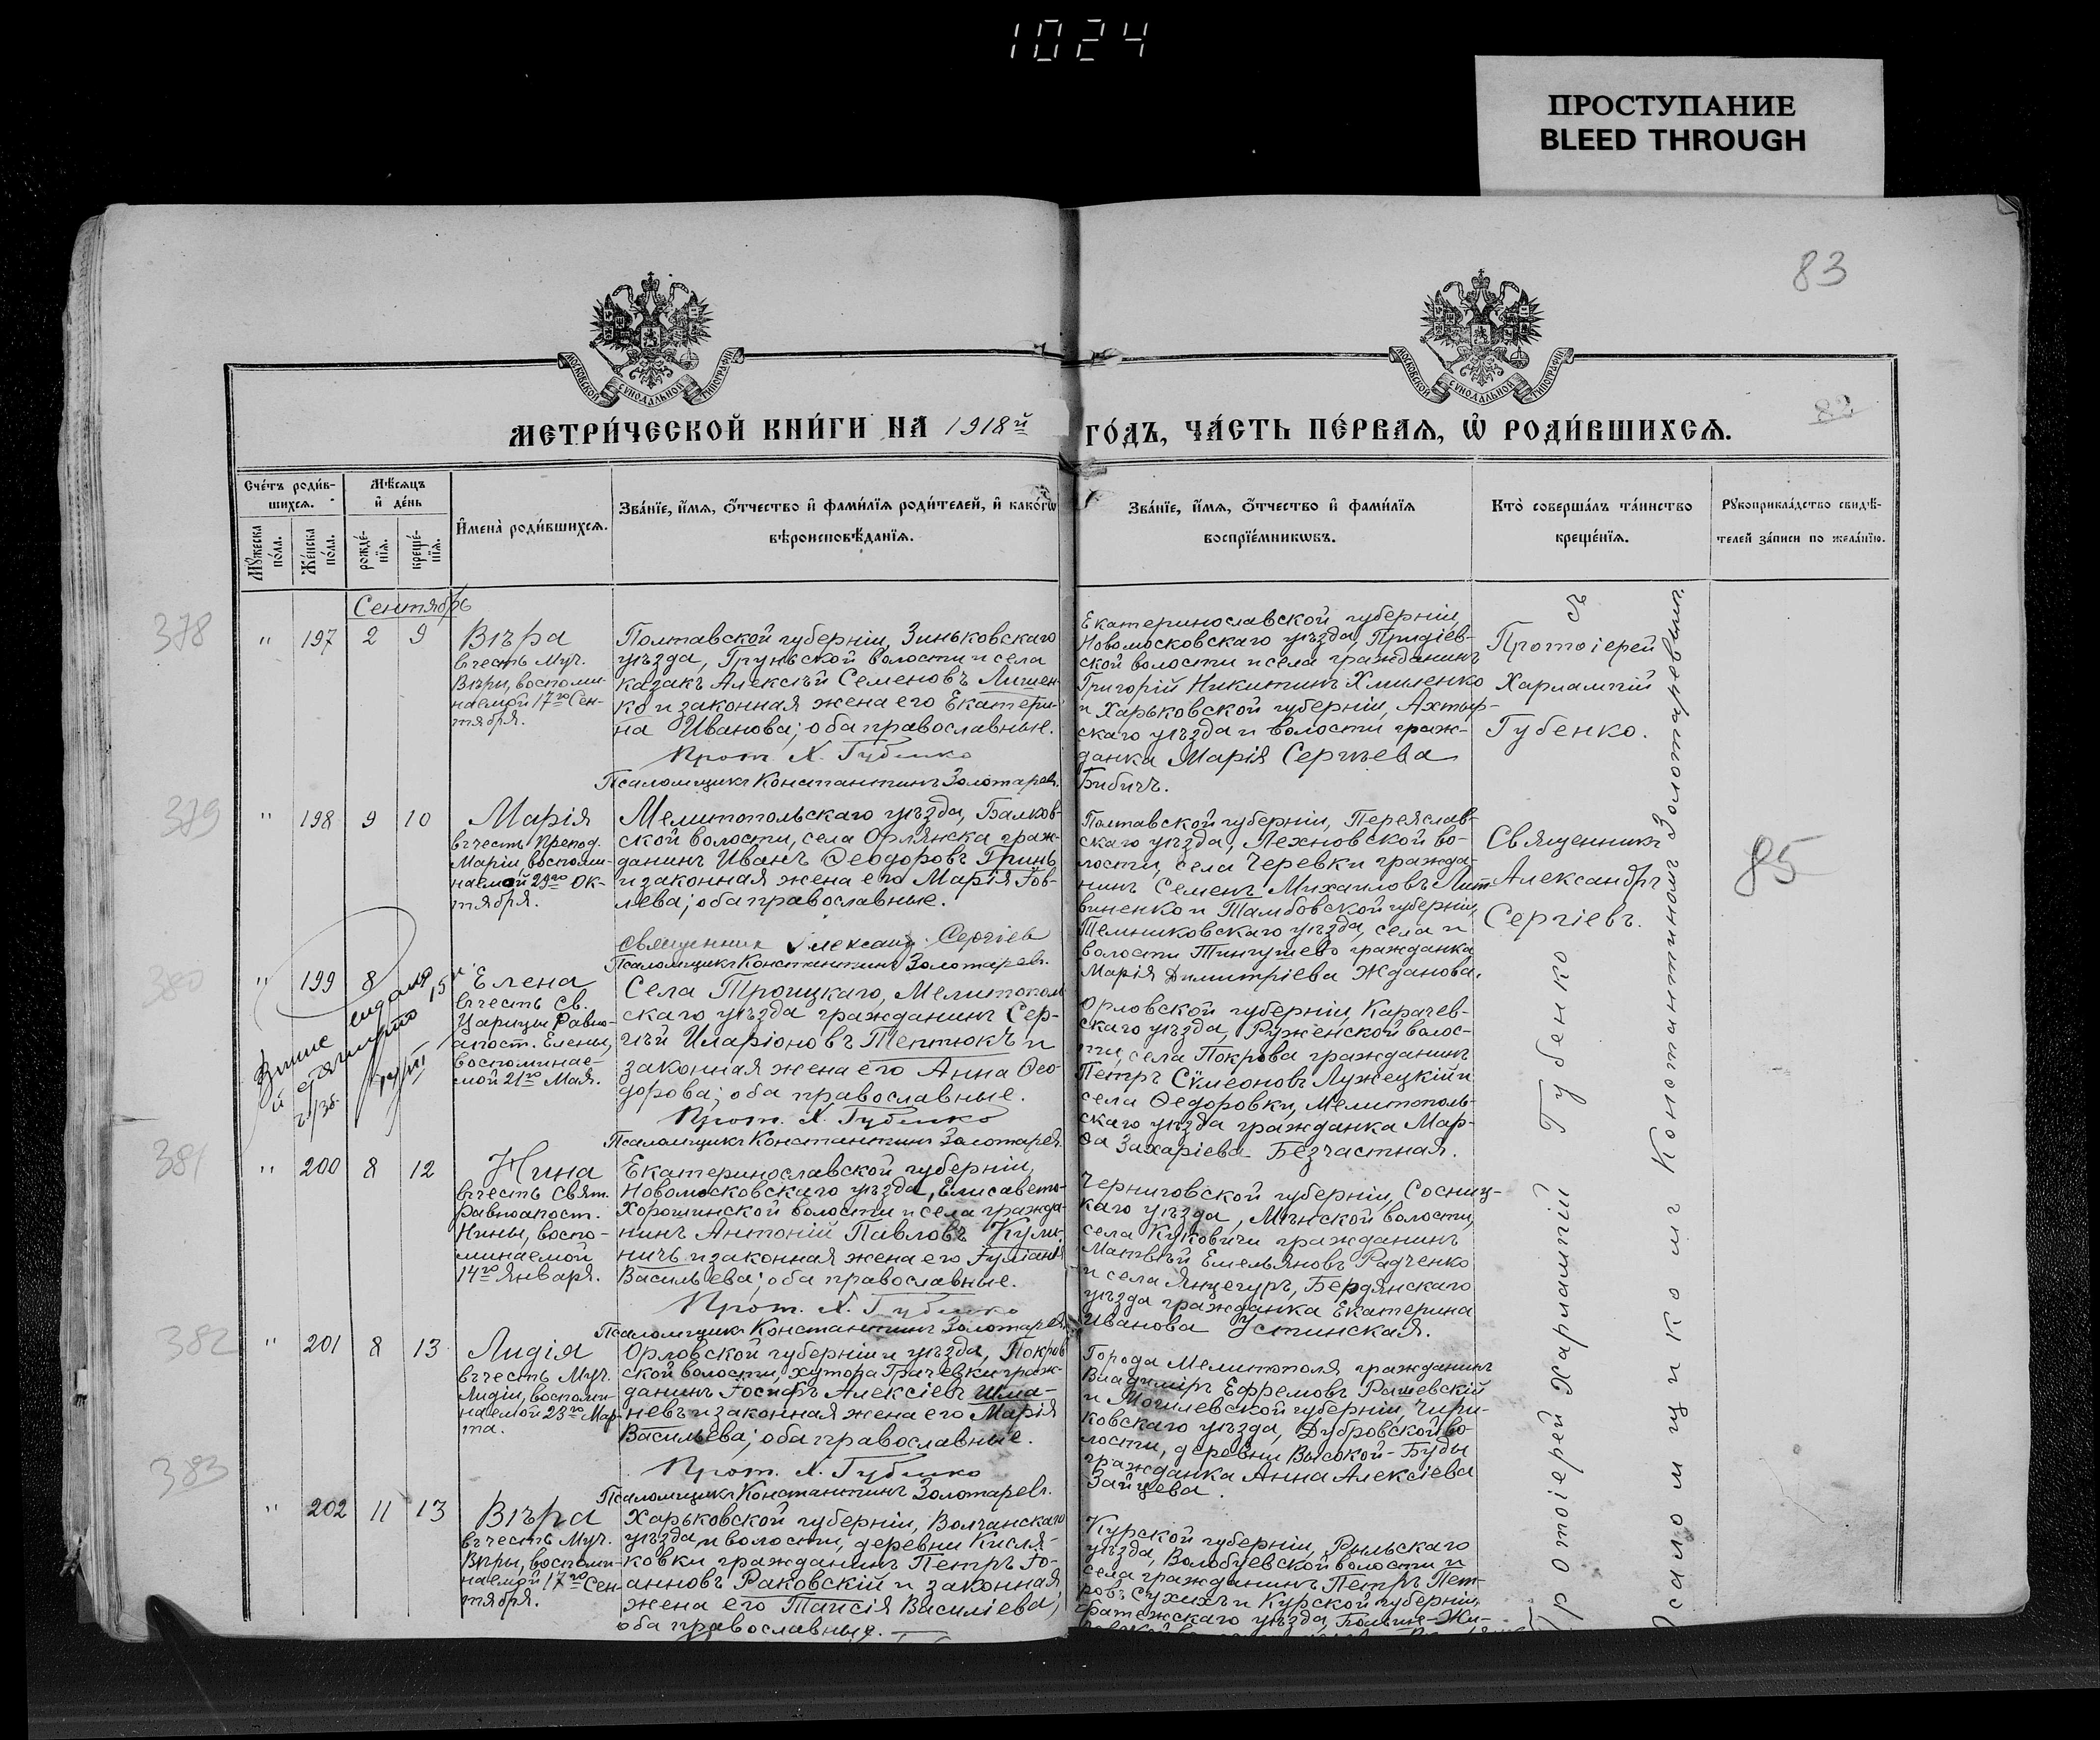 1024
ПРОСТУПАНИЕ
BLEED THROUGH
83
МОСКОВСКОЙ СѴНОДАЛЬНОЙ ТИПОГРАФІИ
МОСКОВСКОЙ СѴНОДАЛЬНОЙ ТИПОГРАФІИ
82
МЕТРИ́ЧЕСКОЙ КНИ́ГИ НА 1918й
ГО́ДЪ, ЧА́СТЬ ПЕ́РВАѦ, Ѡ҆ РОДИ́ВШИХСѦ.
Сче́тъ роди́в-
шихсѧ.
Мꙋ́жеска по́ла.
Же́нска по́ла.
Мѣ́сѧцъ
и҆ де́нь
рожде́-
нїѧ.
креще́-
нїѧ.
И҆мена̀ роди́вшихсѧ.
Зва́нїе, и҆́мѧ, ѻ҆́тчество и҆ фами́лїѧ роди́телей, и҆ како́гѡ
вѣроисповѣ́данїѧ.
Зва́нїе, и҆́мѧ, ѻ҆́тчество и҆ фами́лїѧ
воспрїе́мникѡвъ.
Кто̀ соверша́лъ та́инство
креще́нїѧ.
Рꙋкоприкла́дство свидѣ́-
телей за́писи по жела́нїю.
Сентябрь
378
" 197 2 9
Вѣра
въ честь Муч.
Вѣры, воспоми-
наемой 17го Сен-
тября.
Полтавской губерніи, Зиньковскаго
уѣзда, Груньской волости и села
казакъ Алексѣй Семеновъ Лишен-
ко и законная жена его Екатери-
на Иванова; оба православные.
Прот. Х. Губенко
Псаломщикъ Константинъ Золотаревъ.
Екатеринославской губерніи,
Новомосковскаго уѣзда,
ской волости и села гражданинъ
Григорій Никитинъ Хмиленко
и Харьковской губерніи, Ахтыр-
скаго уѣзда и волости граж-
данка Марія Сергѣева
Бибичъ.
Протоіерей
Харлампій
Губенко.
379
" 198 9 10
Марія
въ честь Препод.
Маріи, воспоми-
наемой 29го Ок-
тября.
Мелитопольскаго уѣзда, Балков-
ской волости, села Орлянска граж-
данинъ Иванъ Ѳеодоровъ Гринь
и законная жена его Марія Іов-
лева; оба православные.
Священник Александр Сергіев
Псаломщикъ Константинъ Золотаревъ.
Полтавской губерніи, Переяслав-
скаго уѣзда, Лехновской во-
лости, села Черевки гражда-
нинъ Семенъ Михаиловъ Лит-
виненко и Тамбовской губерніи,
Темниковскаго уѣзда, села и
волости Тингушево гражданка
Марія Димитріева Жданова.
Священникъ
Александръ
Сергіевъ.
85
380
" 199 8
Елена
въ честь Св.
Царицы Равно-
апост. Елены,
воспоминае-
мой 21го Мая.
Села Троицкаго, Мелитополь-
скаго уѣзда гражданинъ Сер-
гѣй Иларіоновъ Тентюкъ и
законная жена его Анна Ѳео-
дорова; оба православные.
Прот. Х. Губенко
Псаломщикъ Константинъ Золотаревъ.
Орловской губерніи, Карачев-
скаго уѣзда, Руженской волос-
ти, села Покрова гражданинъ
Петръ Сѵмеоновъ Лужецкій и
села Ѳедоровки, Мелитополь-
скаго уѣзда гражданка Мар-
ѳа Захаріева Безчастная.
381
" 200 8 12
Нина
въ честь Свят.
Равноапост.
Нины, воспо-
минаемой
14го Января.
Екатеринославской губерніи,
Новомосковскаго уѣзда, Елисавето-
Хорошинской волости и села гражда-
нинъ Антоній Павловъ Кули-
ничъ и законная жена его Іуліанія
Васильева; оба православные.
Прот. Х. Губенко
Псаломщикъ Константинъ Золотаревъ
Черниговской губерніи, Сосниц-
каго уѣзда, Мѣнской волости,
села Куковичи гражданинъ
Матвѣй Емельяновъ Радченко
и села Янчегуръ, Бердянскаго
уѣзда гражданка Екатерина
Иванова Устинская.
382
" 201 8 13
Лидія
въ честь Муч.
Лидіи, воспоми-
наемой 23го Мар-
та.
Орловской губерніи и уѣзда, Покров-
ской волости, хутора Грачевки граж-
данинъ Іосифъ Алексіевъ Шма-
невъ и законная жена его Марія
Васильева; оба православные.
Прот. Х. Губенко
Псаломщикъ Константинъ Золотаревъ.
Города Мелитополя гражданинъ
Владиміръ Ефремовъ Рашевскій
и Могилевской губерніи, Чири-
ковскаго уѣзда, Дубровской во-
лости, деревни Высокой-Буды
гражданка Анна Алексіева
Зайцева.
383
" 202 11 13
Вѣра
въ честь Муч.
Вѣры, воспоми-
наемой 17го Сен-
тября.
Харьковской губерніи, Волчанскаго
уѣзда, и волости, деревни Кисля-
ковки гражданинъ Петръ Іо-
анновъ Раковскій и законная
жена его Таисія Василіева;
оба православные.
Курской губерніи, Рыльскаго
уѣзда, Волобуевской волости и
села гражданинъ Петръ Пет-
ровъ Сухихъ и Курской губерніи,
Фатежскаго уѣзда,
Протоіерей Харлампій Губенко съ
Псаломщикомъ Константиномъ Золотаревымъ.